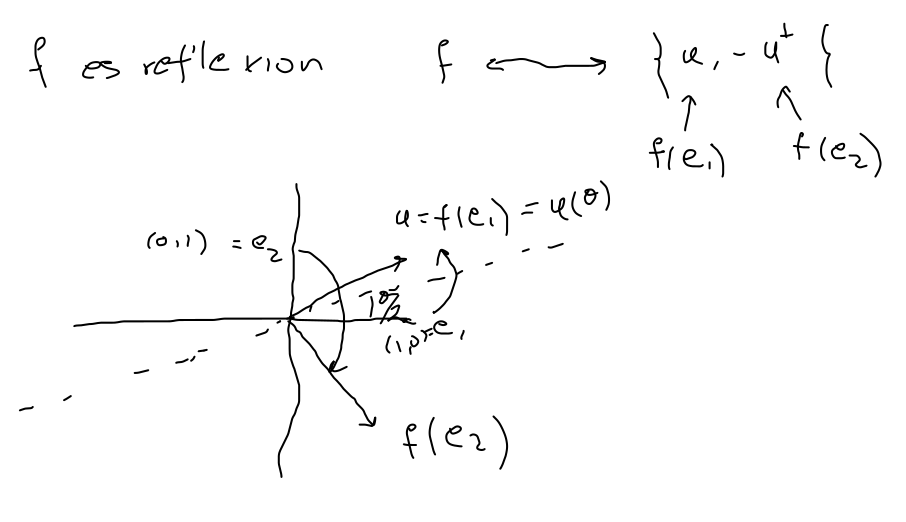 f es reflexion f ⟷ { u, -u^⊥ }
↑ ↑
f(e₁) f(e₂)
u = f(e₁) = u(θ)
(0,1) = e₂
θ/2
(1,0) = e₁
f(e₂)